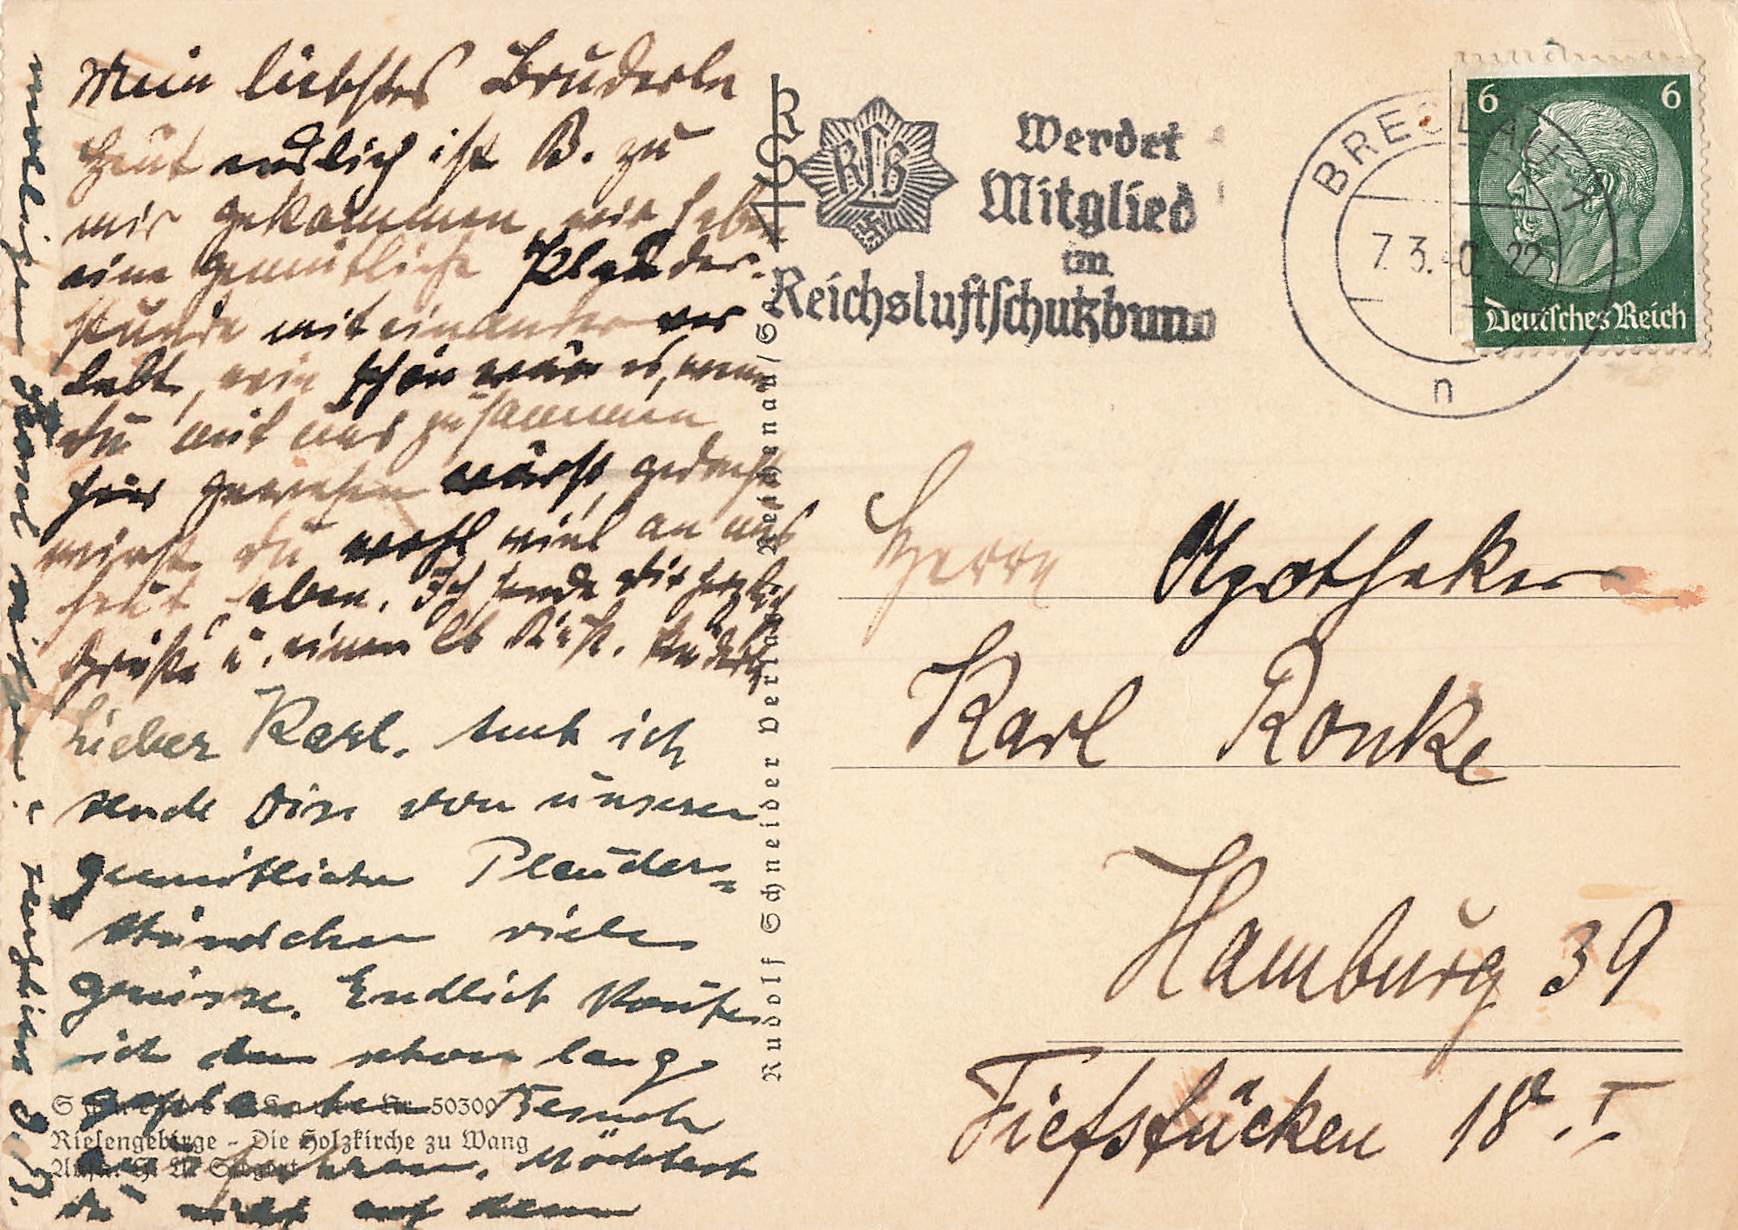 Mein liebstes Bruderle
heut endlich ist B. zu
mir gekommen, wir haben
eine gemütliche Plauder-
stunde miteinander ver
lebt, wie schön wär es, wenn
du mit uns zusammen
hier gewesen wärst, gedacht
wirst du wohl viel an uns
heut haben. Ich sende dir herzlich
Grüße u. einen lb Kuß.
Lieber Karl. Auch ich
sende Dir von unserem
gemütlichen Plauder-
stündchen viele
Grüsse. Endlich konnte
ich den schon lang
geplanten Besuch
Möchtest
du nicht auf dem
Nr. 50300
Riesengebirge - Die Holzkirche zu Wang
Rudolf Schneider Verlag Reichenau/Sa.
RLB
Werdet
Mitglied
im
Reichsluftschutzbund
BRESLAU
7.3.40. 22
n
6 6
Deutsches Reich
Herrn Apotheker
Karl Ronke
Hamburg 39
Tiefstücken 18a. I